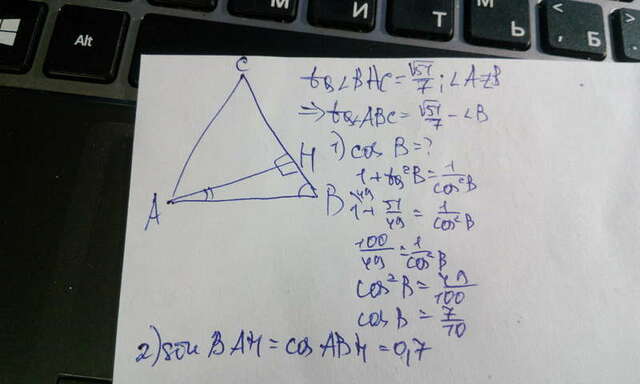 Alt
М
И
Т
Ь
Б
C
H
A
B
tg∠BAC = √51/7; ∠A=∠B
⇒ tg∠ABC = √51/7 - ∠B
1) cos B = ?
1 + tg²B = 1/cos²B
1 + 51/49 = 1/cos²B
100/49 = 1/cos²B
cos²B = 49/100
cos B = 7/10
2) sin BAH = cos ABH = 0,7